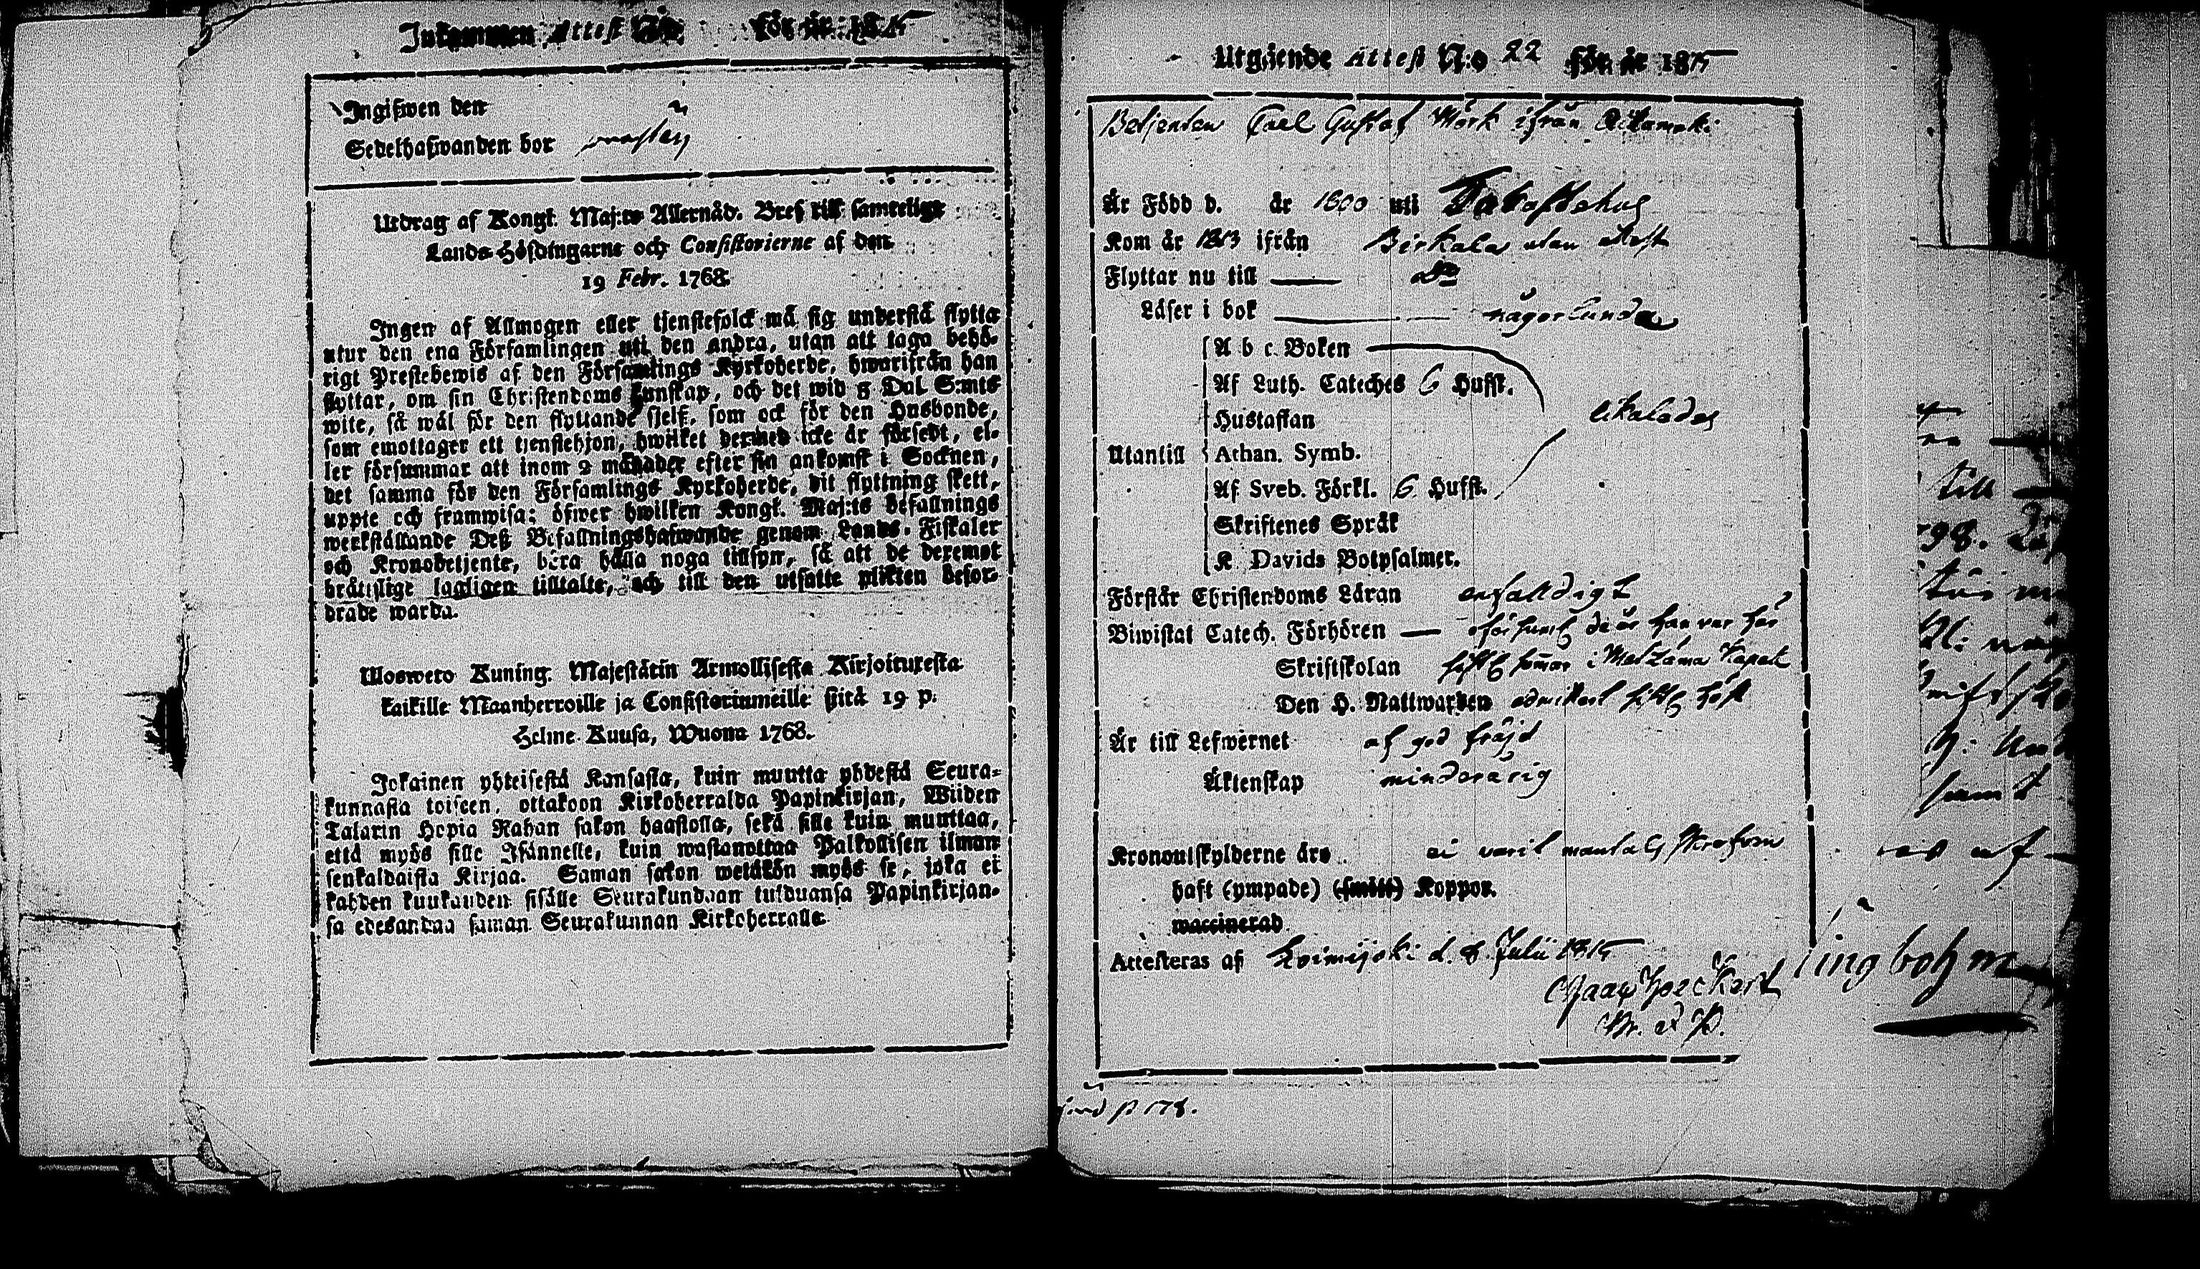 Inkommen Attest N:o för år 1815
Ingifwen den
Sedelhafwanden bor
Utdrag af Kongl. Maj:ts Allernåd. Bref till samtelige
Lands-Höfdingarne och Consistorierne af den
19 Febr. 1768.
Ingen af Allmogen eller tjenstefolck må sig understå flytta
utur den ena Församlingen uti den andra, utan att taga behö-
rigt Prestebewis af den Församlings Kyrkoherde, hwarifrån han
flyttar, om sin Christendoms kunskap, och det wid 5 Dal. S:mts
wite, så wäl för den flyttande sjelf, som ock för den Husbonde,
som emottager ett tjenstehjon, hwilket dermed icke är försedt, el-
ler försummar att inom 2 månader efter sin ankomst i Socknen,
det samma för den Församlings Kyrkoherde, dit flyttning skett,
uppte och framwisa: öfwer hwilken Kongl. Maj:ts befallnings
werkställande Deß Befallningshafwande genom Lands-Fiskaler
och Kronobetjente, böra hålla noga tillsyn, så att de deremot
bråttslige lagligen tilltalte, och till den utsatte plikten befor-
drade warda.
Ulosweto Kuning. Majestätin Armollisesta Kirjoituxesta
kaikille Maanherroille ja Consistoriumeille siitä 19 p:
Helme Kuusa, Wuonna 1768.
Jokainen yhteisestä Kansasta, kuin muutta yhdestä Seura-
kunnasta toiseen, ottakoon Kirkoherralda Papinkirjan, Wiiden
Talarin Hopia Rahan sakon haastolla, sekä sille kuin muuttaa,
että myös sille Isännelle, kuin wastanottaa Palkollisen ilman
senkaldaista Kirjaa. Saman sakon wetäkön myös se, joka ei
kahden kuukauden sisälle Seurakundaan tulduansa Papinkirjan-
sa edesandaa saman Seurakunnan Kirkoherralle
Utgående Attest N:o 22 för år 1815
Betjenten Carl Gustaf Mörk ifrån
Är Född d. år 1800 uti Tavastehus
Kom år 1813 ifrån Birkala utan attest
Flyttar nu till D:o
Läser i bok någorlunda
A b c. Boken
Af Luth. Cateches 6 Hufst.
Hustaflan
likaledes
Utantill Athan. Symb.
Af Sveb. Förkl. 6 Hufst.
Skriftenes Språk
K. Davids Botpsalmer.
Förstår Christendoms Läran enfaldigt
Biwistat Catech. Förhören då år han var här
Skriftskolan sistl. sommar i Metzäma Kapell
Den H. Nattwarden admitterad sistl. höst
Är till Lefwernet af god fräjd
Äktenskap minderårig
Kronoutskylderne äro ei varit mantals skrefven
haft (ympade) (små) Koppor.
waccinerad
Attesteras af d. 8 Julii 1815
p 178.
till
98.
samt
af